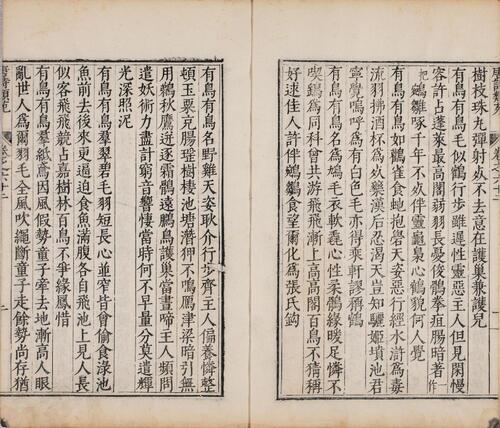 樹枝珠丸彈射死不去意在護巢兼護兒
有鳥有鳥毛似鶴行步雖遲性靈惡主人但見閒慢
容許占蓬萊最高閣弱羽長憂後鶻拳疽腸暗著一作
把鵷雛啄千年不死伴靈龜梟心鶴貌何人覺
有鳥有鳥如鸛雀食蛇抱礜天姿惡行經水滸爲毒
流羽拂酒杯爲死藥漢后忍渴天豈知驪姬墳池君
寧覺嗚呼爲有白色毛亦得乘軒謬稱鶴
有鳥有鳥名爲鳩毛衣軟毳心性柔鶻緣暖足憐不
喫鷂爲同科曾共游飛飛漸上高高閣百鳥不猜稱
好逑佳人許伴鵷鶵食望爾化爲張氏鉤
有鳥有鳥名野雞天姿耿介行步齊主人偏養憐整
頓玉粟充腸瑤樹棲池塘潛狎不鳴鴈津梁暗引無
用鵜秋鷹迸逐霜鶻遠鵩鳥護巢當晝啼主人頻問
遣妖術力盡計窮音響悽當時何不早量分莫遣輝
光深照泥
有鳥有鳥羣翠碧毛羽短長心並窄皆曾偷食淥池
魚前去後來更逼迫食魚滿腹各自飛池上見人長
似客飛飛競占嘉樹林百鳥不爭緣鳳惜
有鳥有鳥羣紙鳶因風假勢童子牽去地漸高人眼
亂世人爲爾羽毛全風吹繩斷童子走餘勢尚存猶